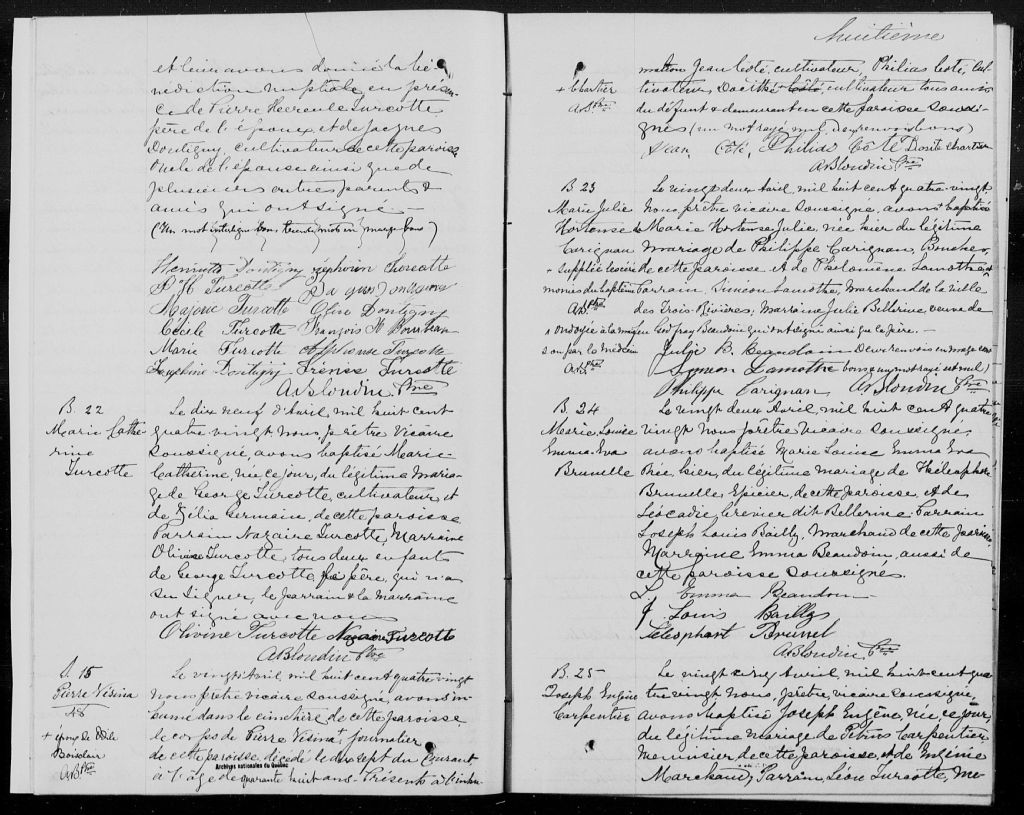 et leur avons donné la bé-
nédiction nuptiale en présen-
ce de Pierre Hercule Turcotte
père de l'époux, et de Jacques
Doutigny, cultivateur de cette paroisse
oncle de l'épouse ainsi que de
plusieurs autres parents &
amis qui ont signé.—
(Un mot interligne bon, trente mots en marge bons)
Henriette Doutigny Zéphirin Turcotte
P H Turcotte
Majorie Turcotte Olive Doutigny
Cécile Turcotte François H
Marie Turcotte Alphonse Turcotte
Joséphine Doutigny Irénée Turcotte
A Blondin Ptre
B. 22
Marie Cathe-
rine
Turcotte
Le dix neuf d'Avril, mil huit cent
quatre vingt, nous, prêtre Vicaire
Soussigné, avons baptisé Marie
Catherine, née ce jour, du légitime maria-
ge de George Turcotte, cultivateur, et
de Zélia Germain, de cette paroisse
Parrain Nazaire Turcotte, Marraine
Olivine Turcotte, tous deux enfants
de George Turcotte père, qui n'a
su signer, le parrain & la marraine
ont signé avec nous
Olivine Turcotte Nazaire Turcotte
A Blondin Ptre
S. 15
Pierre Vesina
48
+ époux de Odile
Boisclair
AB Ptre
Le vingt Avril mil huit cent quatre vingt
nous prêtre vicaire soussigné, avons in-
humé dans le cimetière de cette paroisse
le corps de Pierre Vesina + Journalier
de cette paroisse, décédé le dix sept du Courant
à l'âge de quarante huit ans. Présents à l'inhu-
Archives nationales du Québec
huitième
mation Jean Coté, cultivateur, Philias Coté, cul-
+ Chartier
AB. Ptre
tivateur, Dosithé + Côté, cultivateur tous amis
du défunt & demeurant en cette paroisse soussi-
gnés (un mot rayé nul, deux renvois bons)
Jean Coté, Philias Coté Dosité Chartier
A Blondin Ptre
B. 23
Marie Julie
Hortense
Carignan
+ suppléé les céré-
monies du baptême
AB Ptre
x ondoyée à la mai-
son par le médecin
AB Ptre
Le vingt deux Avril, mil huit cent quatre-vingt
Nous prêtre vicaire soussigné, avons + baptisé
Marie Hortense Julie, née hier du légitime
mariage de Philippe Carignan, Boucher,
de cette paroisse et de Philomène Lamothe x
Parrain, Siméon Lamothe, Marchand de la Ville
des Trois Rivières, Marraine Julie Bellerive, veuve de
Godfrey Beaudoin qui ont signé ainsi que le père.—
Julie B. Beaudoin Deux renvois en marge
Simeon Lamothe bons un mot rayé est nul)
Philippe Carignan A Blondin Ptre
B. 24
Marie Louise
Emma Eva
Brunelle
Le vingt deux Avril, mil huit cent quatre
vingt nous prêtre vicaire soussigné
avons baptisé Marie Louise Emma Eva
née hier, du légitime mariage de Théléophore
Brunelle, Epicier, de cette paroisse et de
Léocadie Crevier dit Bellerive. Parrain
Joseph Louis Bailly, Marchand de cette paroisse
Marraine Emma Beaudoin, aussi de
cette paroisse soussignés.
Emma Beaudoin
J. Louis Bailly
Téléophore Brunel
A Blondin Ptre
B. 25
Joseph Eugène
Carpentier
Le vingt cinq Avril, mil huit cent qua-
tre vingt nous, prêtre, vicaire soussigné,
avons baptisé Joseph Eugène, né ce jour,
du légitime mariage de Pétrus Carpentier,
menuisier de cette paroisse, et de Eugénie
Marchand, Parrain, Léon Turcotte, me-